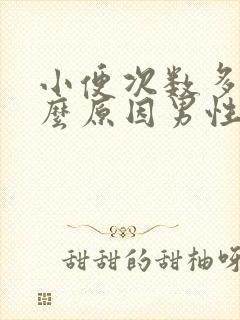 小便次数多
麼原因男性
甜甜的甜柚呀